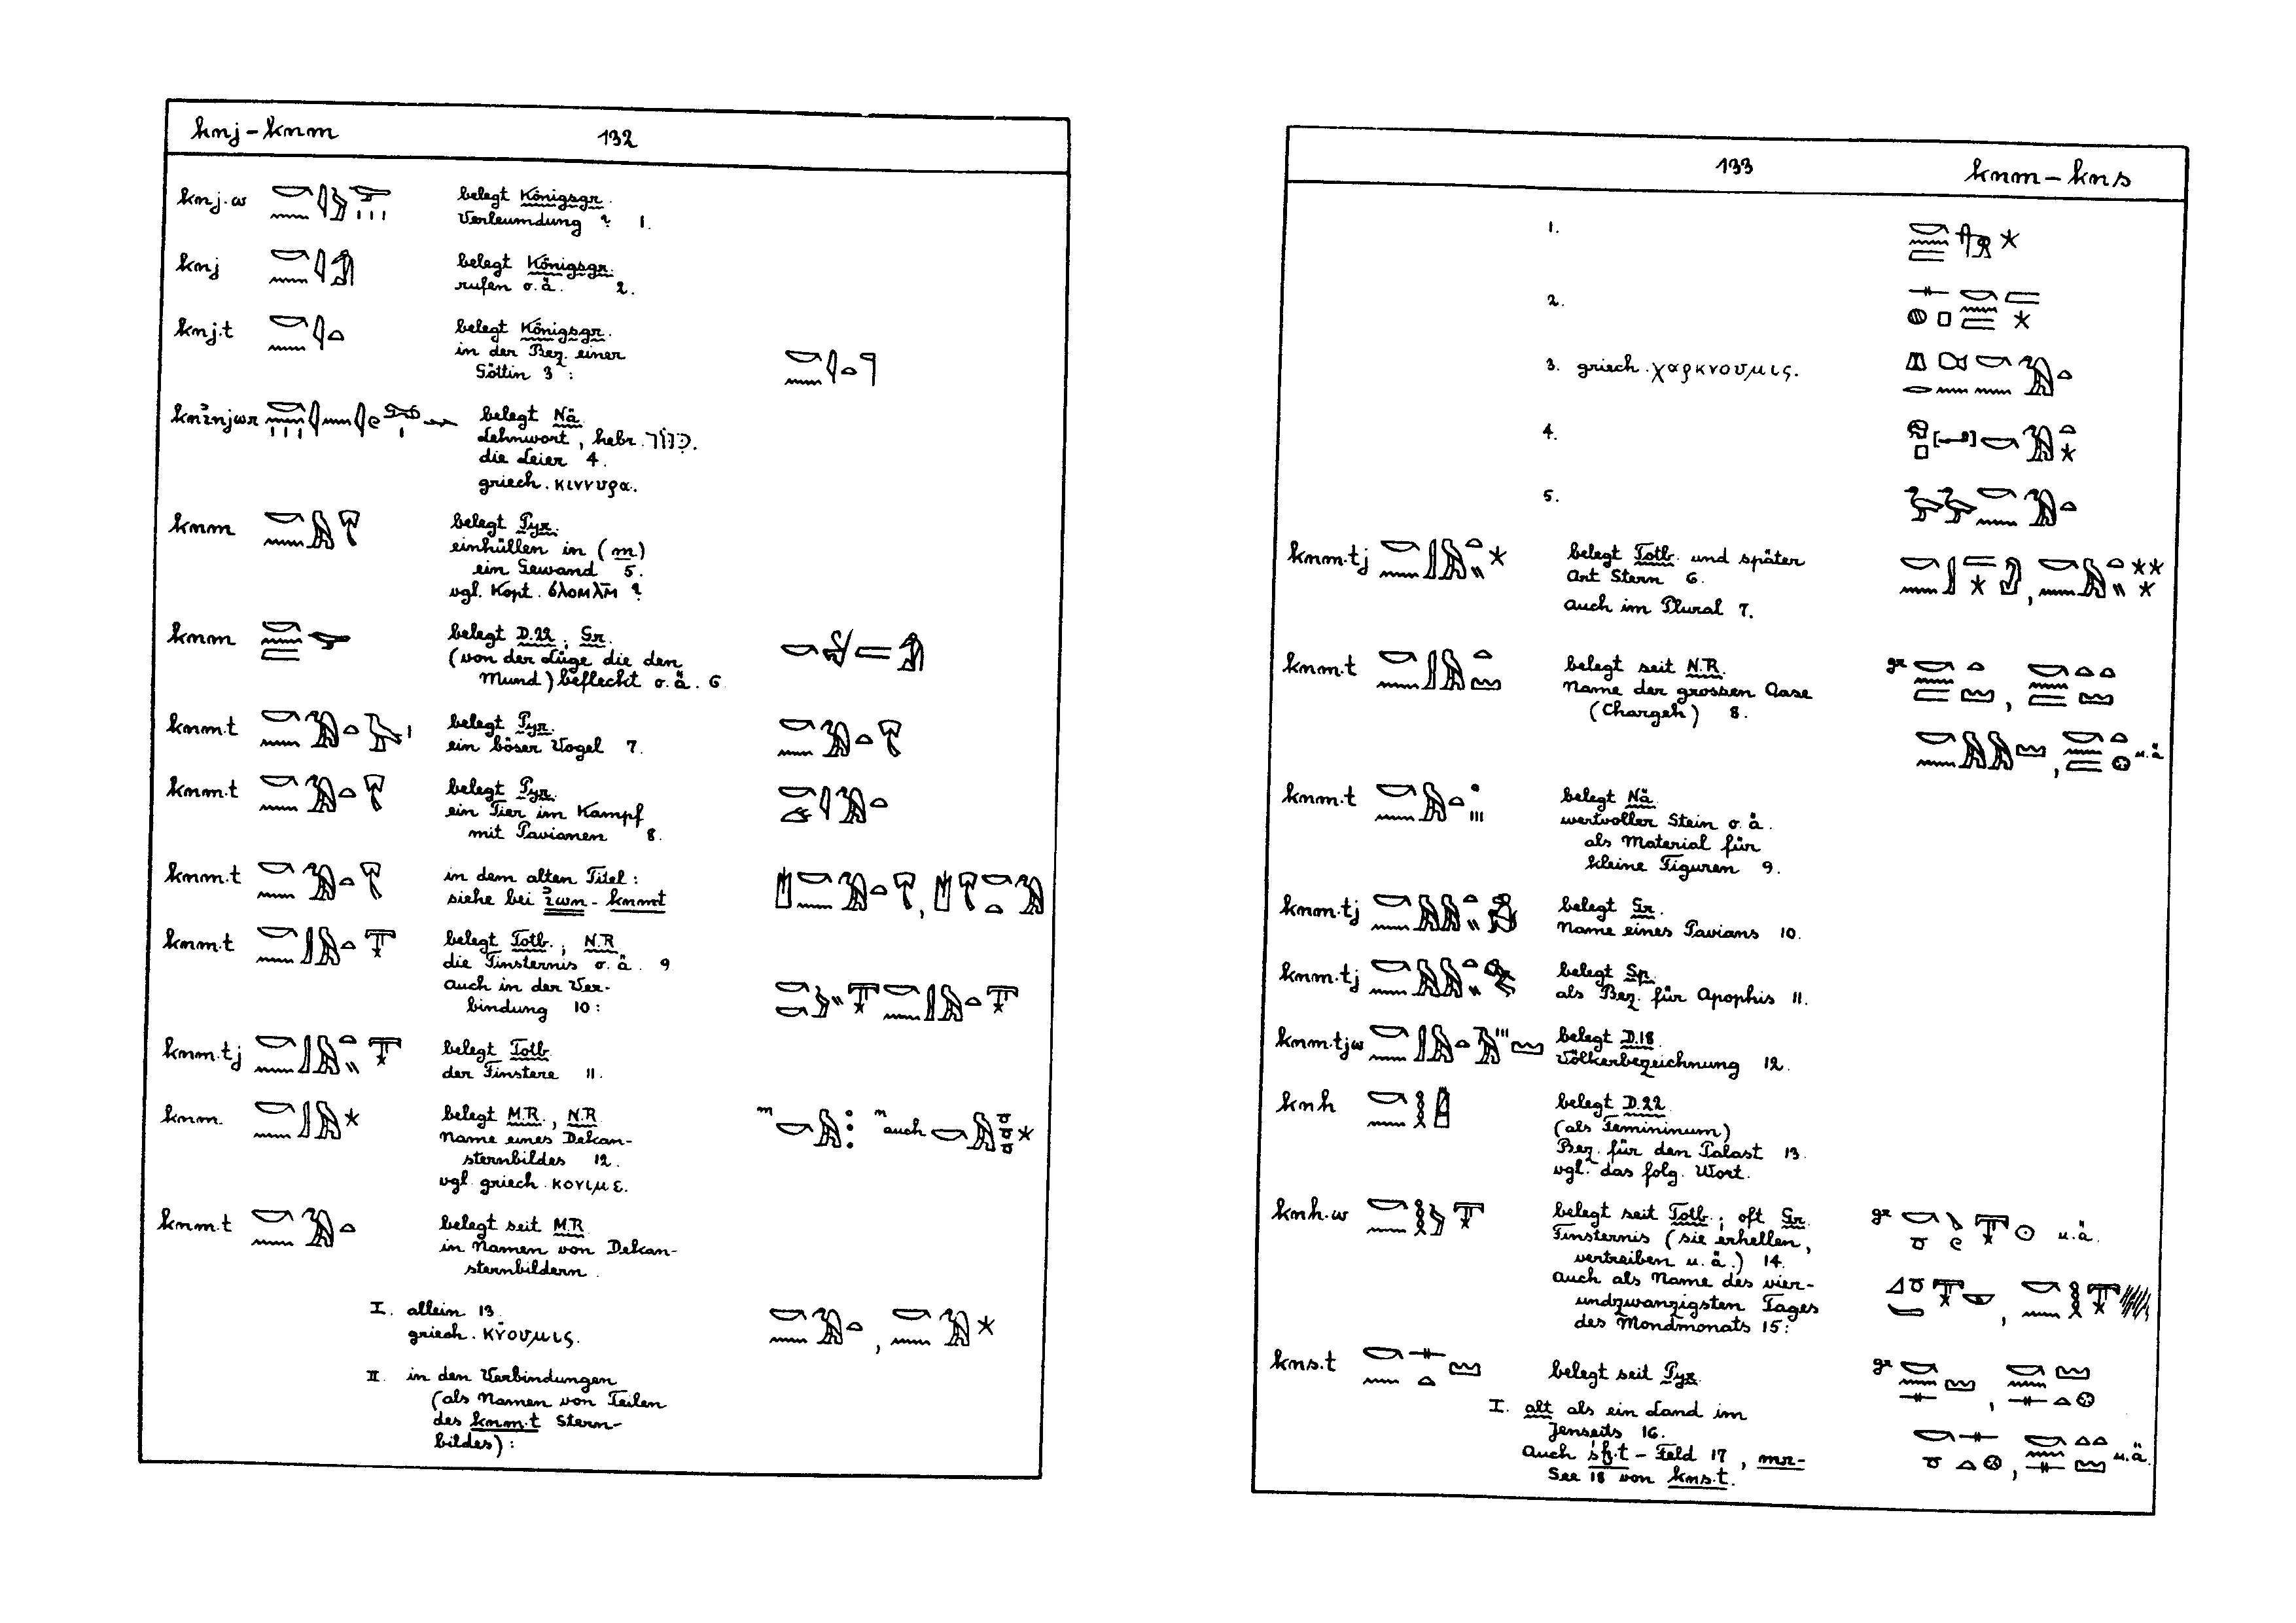 knj – knm 132
knj.w belegt Königsgr.
Verleumdung ? 1.
knj belegt Königsgr.
rufen o.ä. 2.
knj.t belegt Königsgr.
in der Bez. einer
Göttin 3 :
belegt Nä.
Lehnwort, hebr. כִּנּוֹר.
die Leier 4.
griech. κιννυρα.
knm belegt Pyr.
einhüllen in (m)
ein Gewand 5.
vgl. Kopt. ϭλομλⲙ̄ ?
knm belegt D.22, Gr.
(von der Lüge die den
Mund) befleckt o.ä. 6
knm.t belegt Pyr.
ein böser Vogel 7.
knm.t belegt Pyr.
ein Tier im Kampf
mit Pavianen 8.
knm.t in dem alten Titel :
siehe bei ꞽwn - knmt
knm.t belegt Totb., N.R
die Finsternis o.ä. 9
auch in der Ver-
bindung 10 :
knm.tj belegt Totb.
der Finstere 11.
knm. belegt M.R., N.R
Name eines Dekan-
sternbildes 12.
vgl. griech. κονιμε.
m n auch
knm.t belegt seit M.R.
in Namen von Dekan-
sternbildern.
I. allein 13.
griech. κνουμις.
II. in den Verbindungen
(als Namen von Teilen
des knm.t Stern-
bildes) :
133 knm – kns
1.
2.
3. griech. χαρκνουμις.
4.
5.
knm.tj belegt Totb. und später
Art Stern 6.
auch im Plural 7.
knm.t belegt seit N.R. gr
Name der grossen Oase
(Chargeh) 8.
u.ä
knm.t belegt Nä.
wertvoller Stein o.ä.
als Material für
kleine Figuren 9.
knm.tj belegt Gr.
Name eines Pavians 10.
knm.tj belegt Sp.
als Bez. für Apophis 11.
knm.tjw belegt D.18
Völkerbezeichnung 12.
knh belegt D.22
(als Femininum)
Bez. für den Palast 13.
vgl. das folg. Wort.
knh.w belegt seit Totb.; oft Gr. gr u.ä.
Finsternis (sie erhellen,
vertreiben u.ä.) 14.
auch als Name des vier-
undzwanzigsten Tages
des Mondmonats 15 :
kns.t belegt seit Pyr. gr
I. alt als ein Land im
Jenseits 16.
Auch – Feld 17, mr-
See 18 von kns.t.
u.ä.